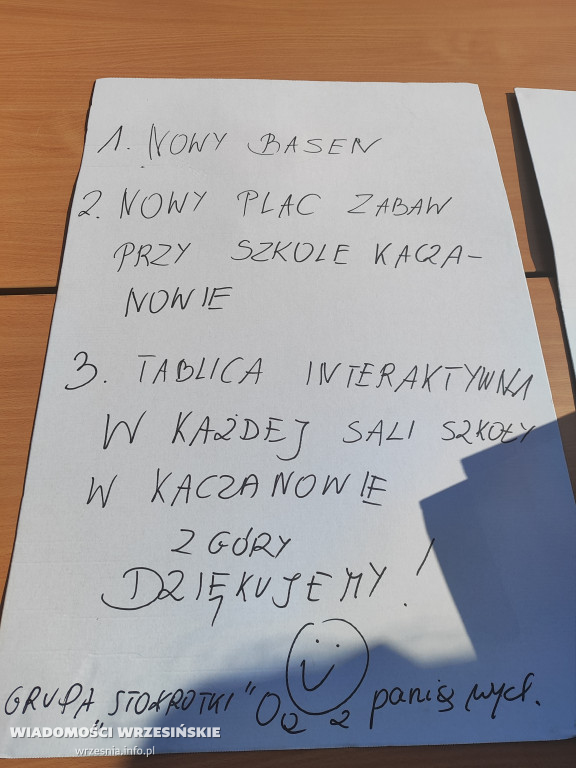 1. NOWY BASEN
2. NOWY PLAC ZABAW
PRZY SZKOLE KACZA-
NOWIE
3. TABLICA INTERAKTYWNA
W KAŻDEJ SALI SZKOŁY
W KACZANOWIE
Z GÓRY
DZIĘKUJEMY!
GRUPA "STOKROTKI" Oo z panią wych.
WIADOMOŚCI WRZESIŃSKIE
wrzesnia.info.pl